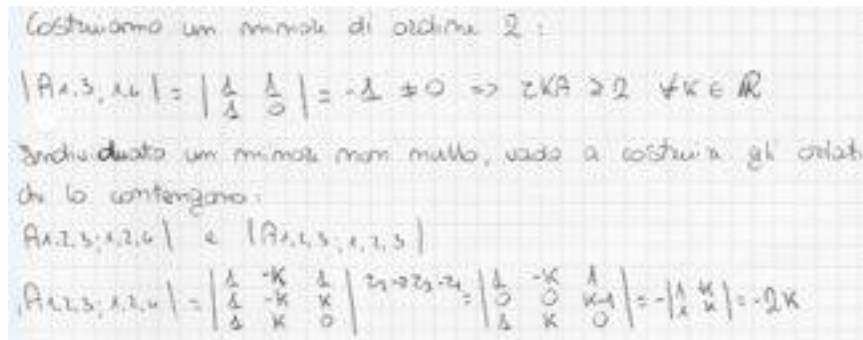 Costruiamo un minore di ordine 2 :
|A1,3;1,4| = | 1 1 ; 1 0 | = -1 ≠ 0 => rKA ≥ 2 ∀K ∈ ℝ
Individuato un minore non nullo, vado a costruire gli orlati
che lo contengono:
A1,2,3;1,2,4| e |A1,2,3;1,2,3|
|A1,2,3;1,2,4| = | 1 -K 1 ; 1 -K K ; 1 K 0 | = | 1 -K 1 ; 0 0 K-1 ; 1 K 0 | = - = -2K